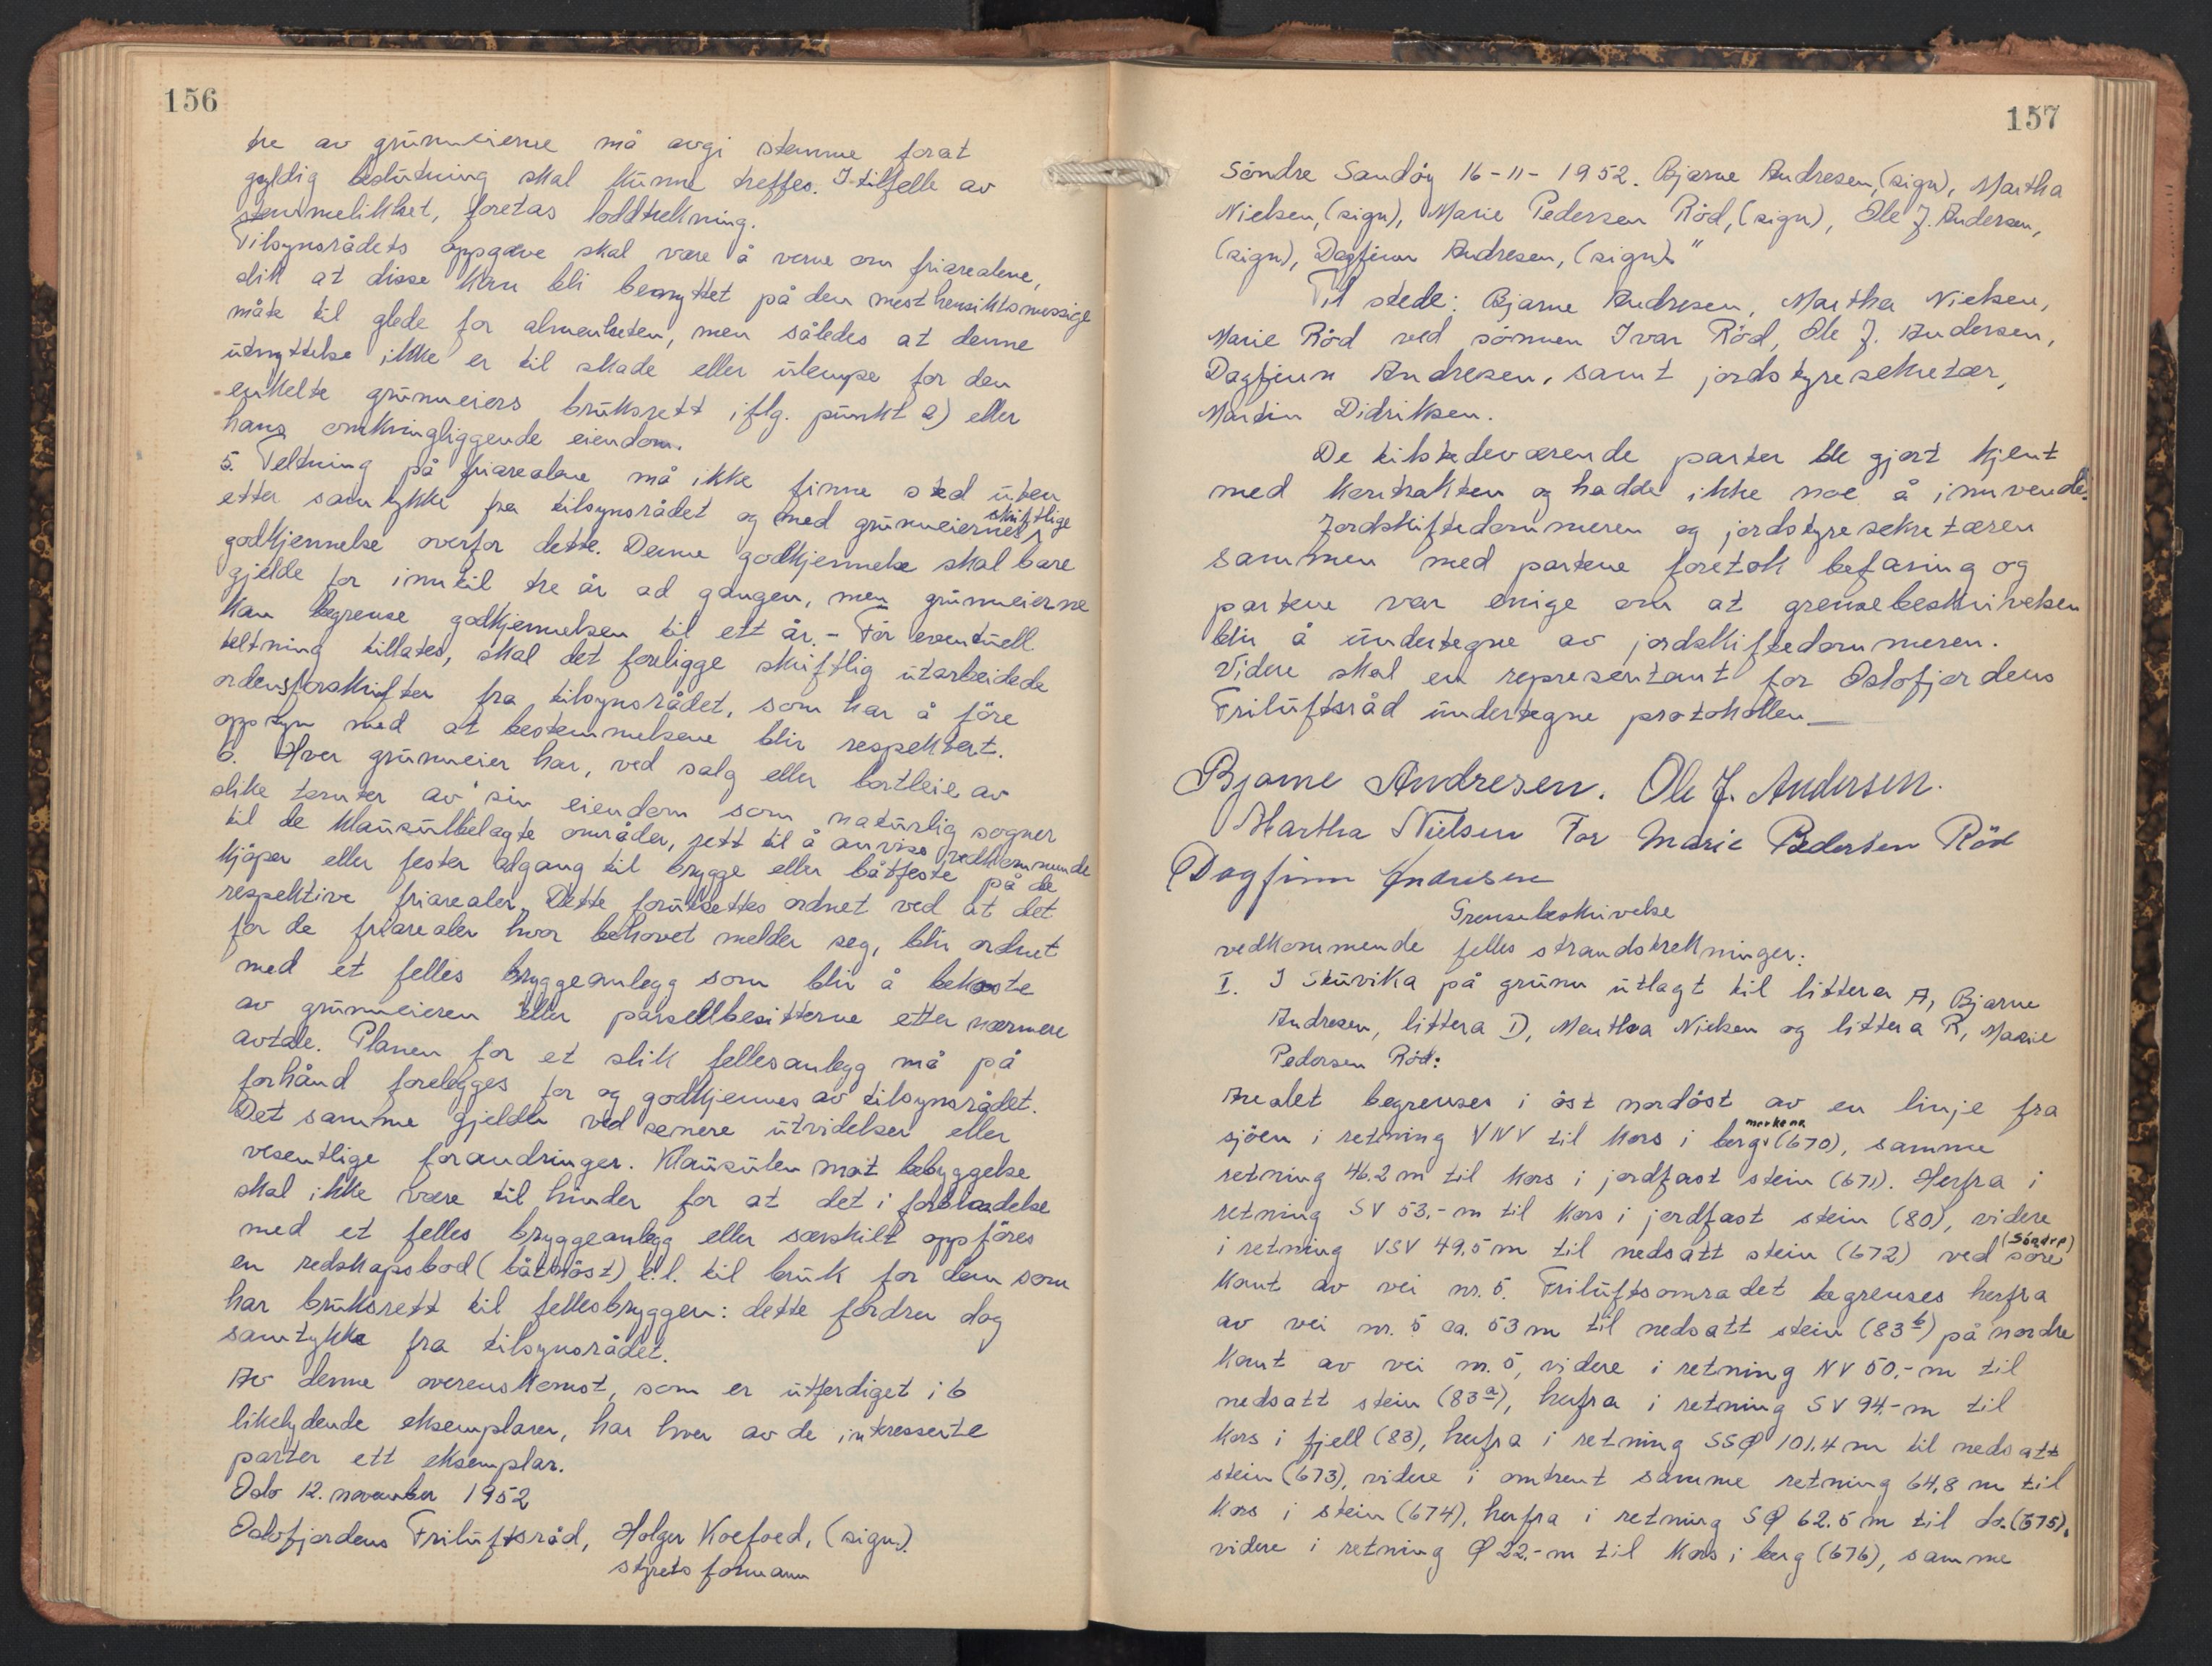 156
tre av grunneierne må avgi stemme forat
gyldig beslutning skal kunne treffes. I tilfelle av
stemmelikhet, foretas loddtrekning.
Tilsynsrådets oppgave skal være å verne om friarealene,
slik at disse kan bli benyttet på den mest hensiktsmessige
måte til glede for almenheten, men således at denne
utnyttelse ikke er til skade eller ulempe for den
enkelte grunneiers bruksrett iflg. punkt 2) eller
hans omkringliggende eiendom.
5. Teltning på friarealene må ikke finne sted uten
etter samtykke fra tilsynsrådet og med grunneiernes skriftlige
godkjennelse overfor dette. Denne godkjennelse skal bare
gjelde for inntil tre år ad gangen, men grunneierne
kan begrense godkjennelsen til ett år. - Før eventuell
teltning tillates, skal det foreligge skriftlig utarbeidede
ordensforskrifter fra tilsynsrådet, som har å føre
oppsyn med at bestemmelsene blir respektert.
6. Hver grunneier har, ved salg eller bortleie av
slike tomter av sin eiendom som naturlig sogner
til de klausulbelagte områder, rett til å anvise vedkommende
kjøper eller fester adgang til brygge eller båtfeste på de
respektive friarealer. Dette forutsettes ordnet ved at det
for de friarealer hvor behovet melder seg, blir ordnet
med et felles bryggeanlegg som blir å bekoste
av grunneieren eller parsellbesitterne etter nærmere
avtale. Planen for et slik fellesanlegg må på
forhånd forelegges for og godkjennes av tilsynsrådet.
Det samme gjelder ved senere utvidelser eller
vesentlige forandringer. Klausulen mot bebyggelse
skal ikke være til hinder for at det i forbindelse
med et felles bryggeanlegg eller særskilt oppføres
en redskapsbod (båtnøst) e.l. til bruk for dem som
har bruksrett til fellesbryggen: dette fordrer dog
samtykke fra tilsynsrådet.
Av denne overenskomst, som er utferdiget i 6
likelydende eksemplarer, har hver av de interesserte
parter ett eksemplar.
Oslo 12. november 1952
Oslofjordens Friluftsråd, Holger Koefoed, (sign).
styrets formann
157
Søndre Sandøy 16-11-1952. Bjarne Andresen, (sign), Martha
Nielsen, (sign), Marie Pedersen Röd, (sign), Ole J. Andersen,
(sign), Dagfinn Andresen, (sign)."
Til stede: Bjarne Andresen, Martha Nielsen,
Marie Röd ved sönnen Ivar Röd, Ole J. Andersen,
Dagfinn Andresen, samt jordstyresekretær,
Martin Didriksen.
De tilstedeværende parter ble gjort kjent
med kontrakten og hadde ikke noe å innvende.
Jordskiftedommeren og jordstyresekretæren
sammen med partene foretok befaring og
partene var enige om at grensebeskrivelsen
blir å undertegne av jordskiftedommeren.
Videre skal en representant for Oslofjordens
Friluftsråd undertegne protokollen.—
Bjarne Andresen. Ole J. Andersen.
Martha Nielsen For Marie Pedersen Röd
Dagfinn Andresen
Grensebeskrivelse
vedkommende felles strandstrekninger:
I. I Stuvika på grunn utlagt til littera A, Bjarne
Andresen, littera D, Martha Nielsen og littera R, Marie
Pedersen Röd:
Arealet begrenses i öst nordöst av en linje fra
sjöen i retning VNV til kors i berg merke no (670), samme
retning 46.2 m til kors i jordfast stein (671). Herfra i
retning SV 53,- m til kors i jordfast stein (80), videre
i retning VSV 49,5 m til nedsatt stein (672) ved söre (Söndre)
kant av vei nr. 5. Friluftsområdet begrenses herfra
av vei nr. 5 ca. 53 m til nedsatt stein (83 b) på nordre
kant av vei nr. 5, videre i retning NV 50,- m til
nedsatt stein (83 a), herfra i retning SV 94,- m til
kors i fjell (83), herfra i retning SSØ 101.4 m til nedsatt
stein (673), videre i omtrent samme retning 64,8 m til
kors i stein (674), herfra i retning SØ 62.5 m til do. (675),
videre i retning Ø 22,- m til kors i berg (676), samme